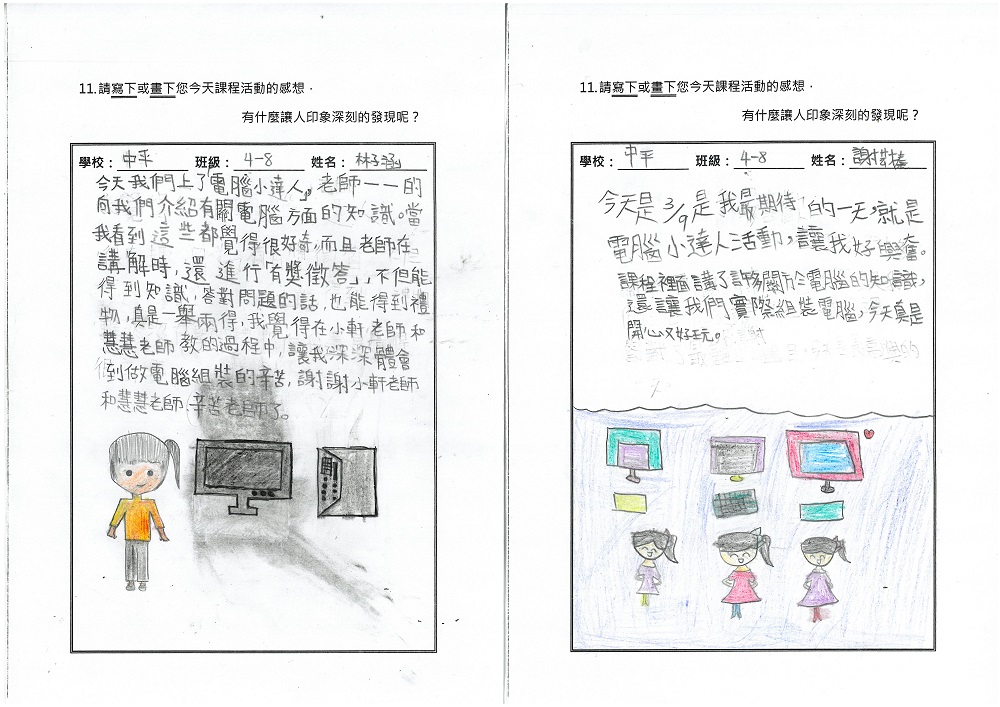 11.請寫下或畫下您今天課程活動的感想．
有什麼讓人印象深刻的發現呢？
學校：中平 班級：4-8 姓名：林子涵
今天我們上了「電腦小達人」，老師一一的
向我們介紹有關電腦方面的知識。當
我看到這些都覺得很好奇，而且老師在
講解時，還進行「有獎徵答」，不但能
得到知識，答對問題的話，也能得到禮
物，真是一舉兩得，我覺得在小軒老師和
慧慧老師教的過程中，讓我深深體會
到做電腦組裝的辛苦，謝謝小軒老師
和慧慧老師、辛苦老師了。
11.請寫下或畫下您今天課程活動的感想．
有什麼讓人印象深刻的發現呢？
學校：中平 班級：4-8 姓名：謝
今天是3/9是我最期待的一天，就是
電腦小達人活動，讓我好興奮。
課程裡面講了許多關於電腦的知識，
還讓我們實際組裝電腦，今天真是
開心又好玩。